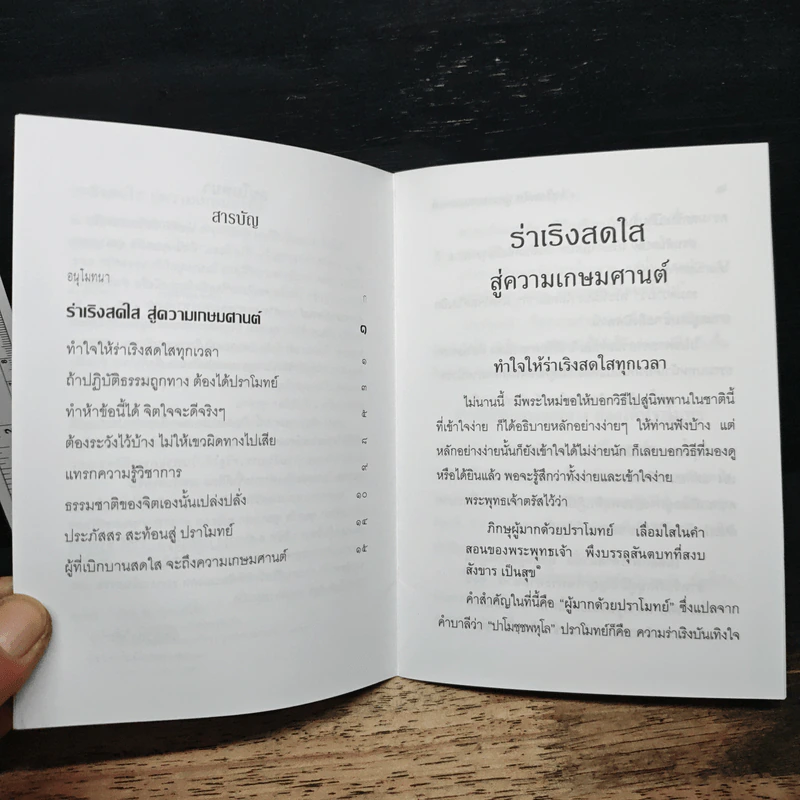 สารบัญ
อนุโมทนา ก
ร่าเริงสดใส สู่ความเกษมศานต์ ๑
ทำใจให้ร่าเริงสดใสทุกเวลา ๑
ถ้าปฏิบัติธรรมถูกทาง ต้องได้ปราโมทย์ ๓
ทำห้าข้อนี้ได้ จิตใจจะดีจริงๆ ๕
ต้องระวังไว้บ้าง ไม่ให้เขวผิดทางไปเสีย ๘
แทรกความรู้วิชาการ ๙
ธรรมชาติของจิตเองนั้นเปล่งปลั่ง ๑๐
ประภัสสร สะท้อนสู่ ปราโมทย์ ๑๔
ผู้ที่เบิกบานสดใส จะถึงความเกษมศานต์ ๑๕
ร่าเริงสดใส
สู่ความเกษมศานต์
ทำใจให้ร่าเริงสดใสทุกเวลา
ไม่นานนี้ มีพระใหม่ขอให้บอกวิธีไปสู่นิพพานในชาตินี้
ที่เข้าใจง่าย ก็ได้อธิบายหลักอย่างง่ายๆ ให้ท่านฟังบ้าง แต่
หลักอย่างง่ายนั้นก็ยังเข้าใจได้ไม่ง่ายนัก ก็เลยบอกวิธีที่มองดู
หรือได้ยินแล้ว พอจะรู้สึกว่าทั้งง่ายและเข้าใจง่าย
พระพุทธเจ้าตรัสไว้ว่า
ภิกษุผู้มากด้วยปราโมทย์ เลื่อมใสในคำ
สอนของพระพุทธเจ้า พึงบรรลุสันตบทที่สงบ
สังขาร เป็นสุข
คำสำคัญในที่นี้คือ "ผู้มากด้วยปราโมทย์" ซึ่งแปลจาก
คำบาลีว่า "ปาโมชฺชพหุโล" ปราโมทย์ก็คือ ความร่าเริงบันเทิงใจ